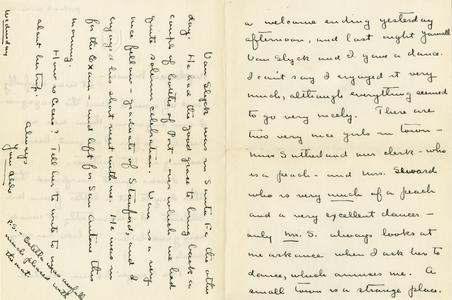 a welcome ending yesterday
afternoon, and last night Yarnell
Van Slyck and I gave a dance.
I can't say I enjoyed it very
much, although everything seemed
to go very nicely. There are
two very nice girls in town -
Miss Sutherland our clerk - who
is a peach - and Mrs. Seward
who is very much of a peach
and a very excellent dancer -
only Mr. S. always looks at
me askance when I ask her to
dance, which amuses me. A
small town is a strange place.
Van Slyck was in Santa Fe the other
day. He had the good grace to bring back a
couple of bottles of Port - over which we had
quite solemn celebration. Van is a very
nice fellow - graduate of Stanford, and I
enjoyed his short visit with me. He was in
for the Exam. and left for San Antonio this
morning.
How is ? Tell him to write to me
about his trip.
Always
Your
Wednesday
P.S. - Estelle was awfully
much pleased with
the